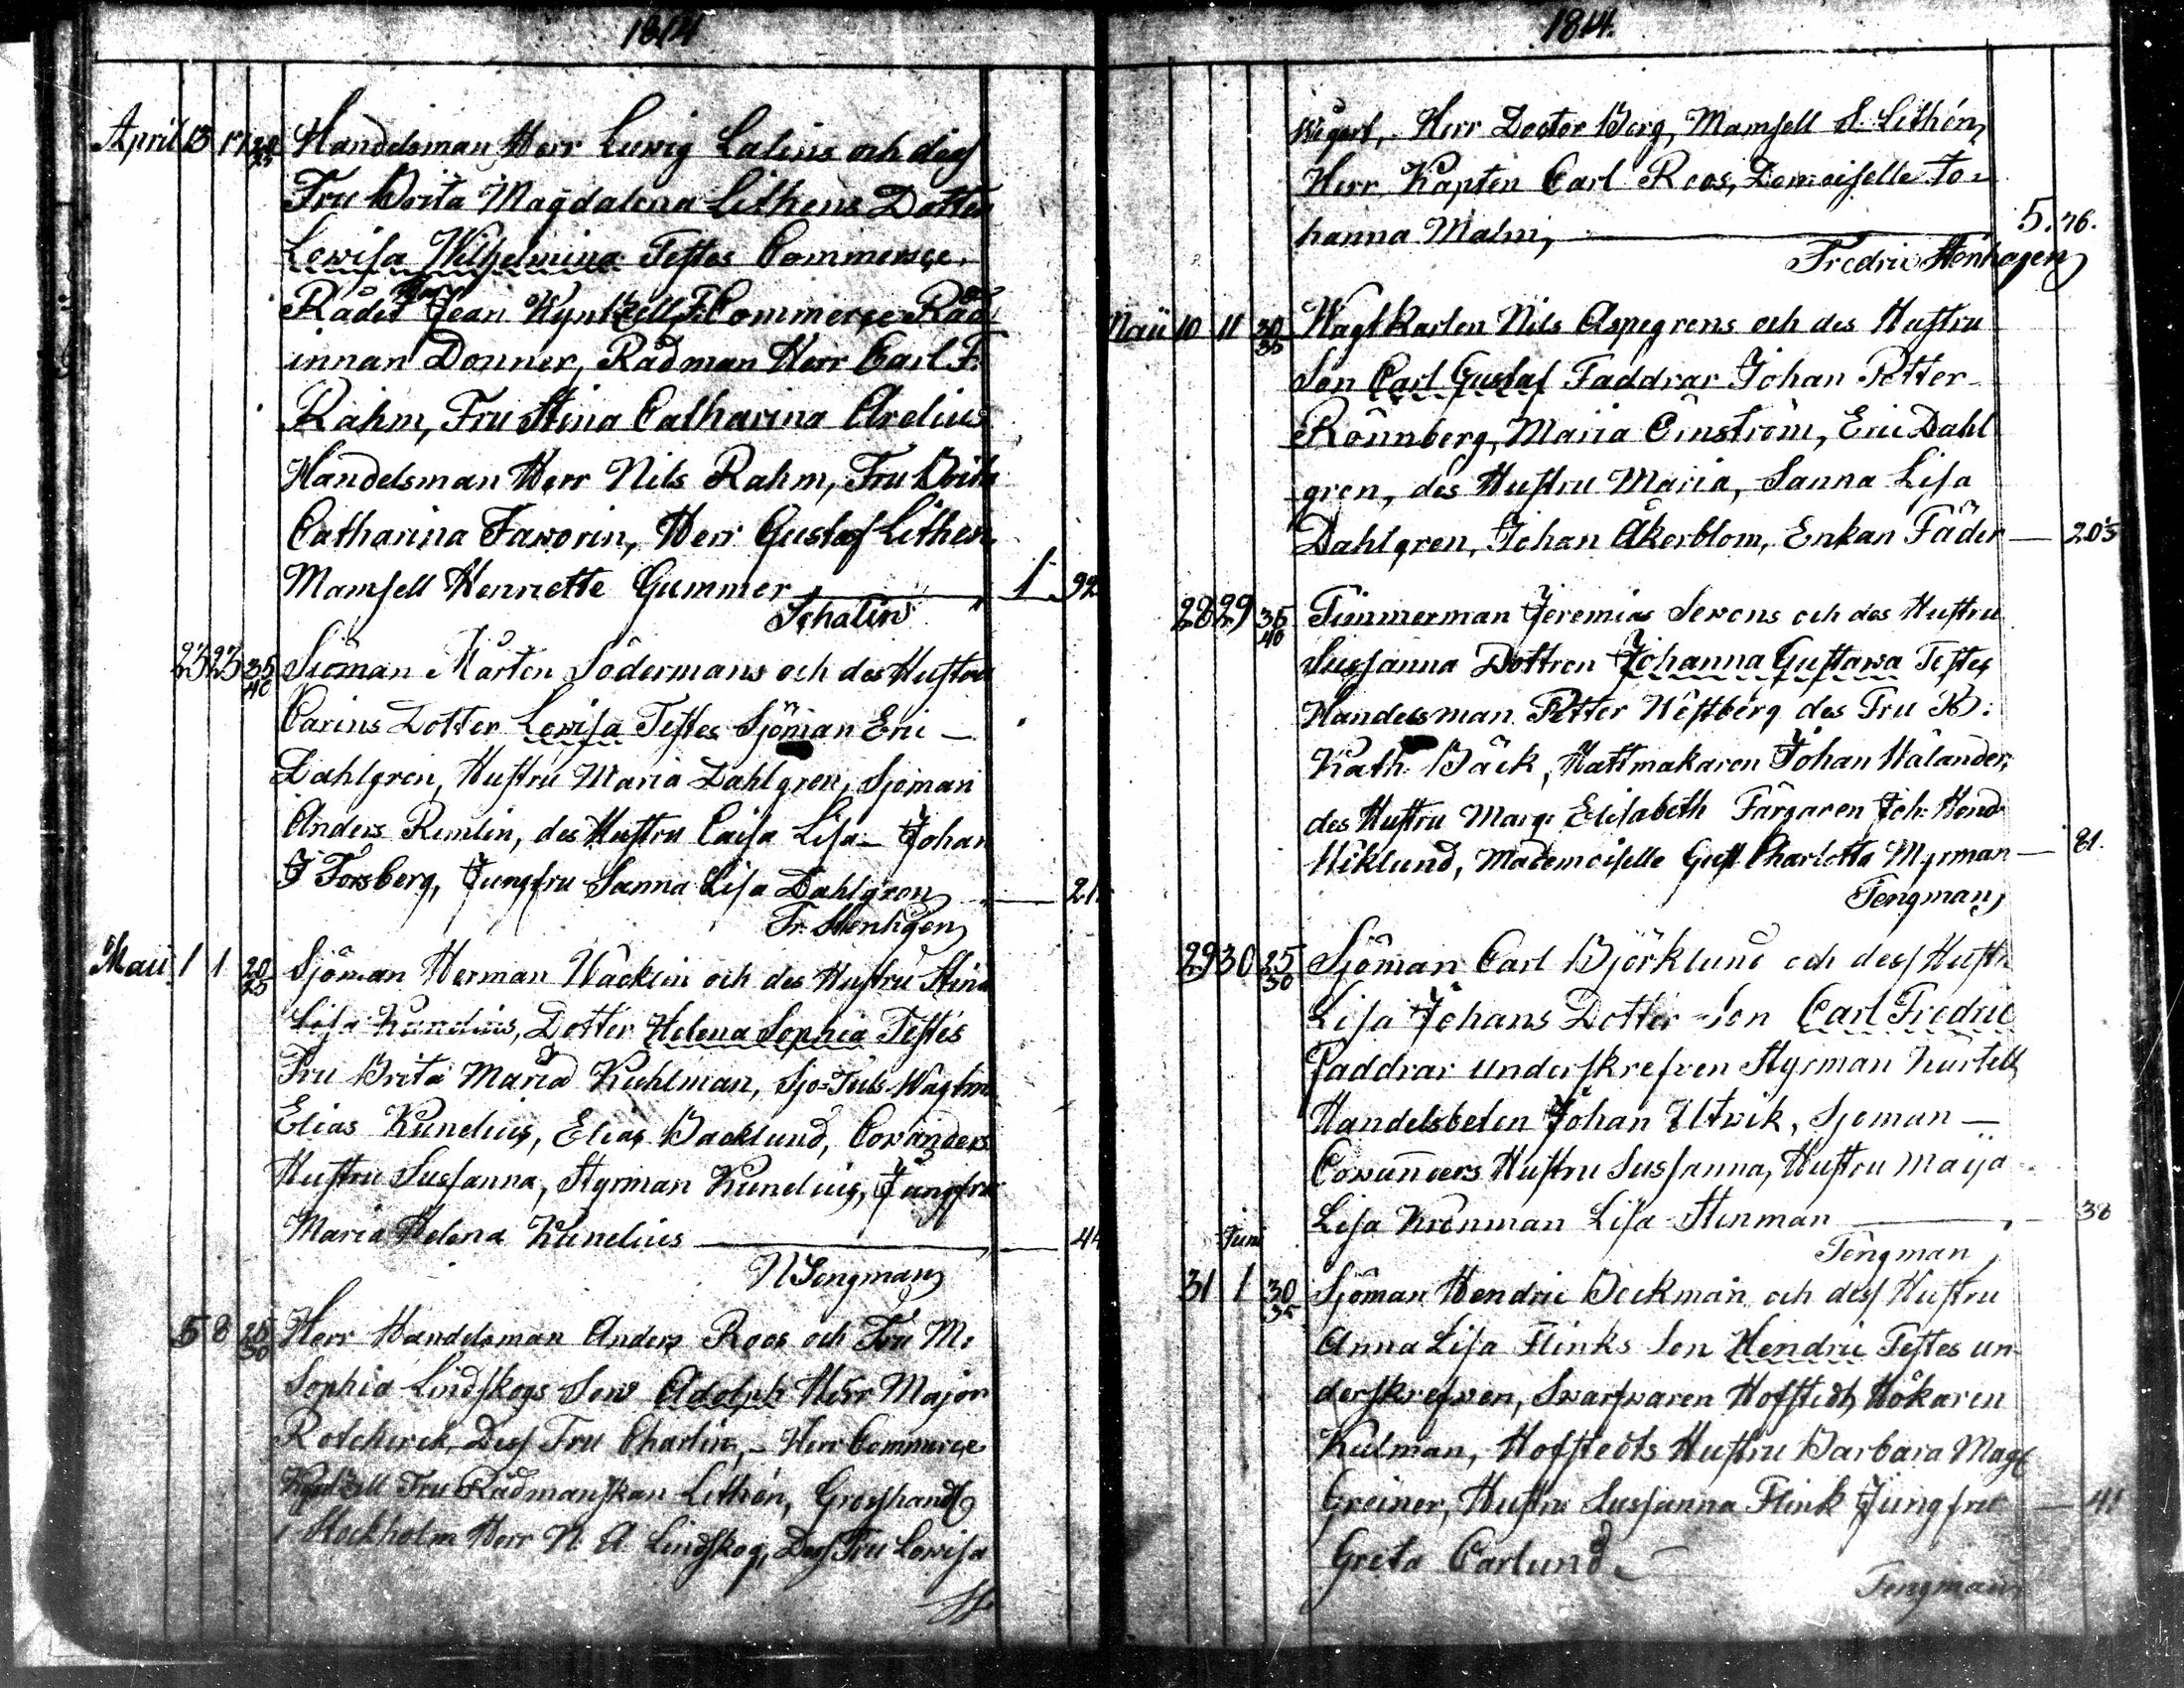 1814
April 13 17 20/25 Handelsman Herr Luvig Calius och dess
Fru Brita Magdalena Lithens Dotter
Lovisa Wilhelmina Testes Commerce
Rådet Herr Jean Kyntzell, Fr Commerce Råd
innan Donner, Rådman Herr Carl F.
Rahm, Fru Stina Catharina Arelius
Handelsman Herr Nils Rahm, Fru Brita
Catharina Faworin, Herr Gustaf Lithen
Mamsell Henriette Gummer 1 92
Schalin
23 23 35/40 Siöman Mårten Södermans och des Hustru
Carins Dotter Lovisa Testes Sjöman Eric
Dahlgren, Hustru Maria Dahlgren, Sjöman
Anders Remlin, des Hustru Caisa Lisa Johan
J Forsberg, Jungfru Sanna Lisa Dahlgren 21
Fr. Stenhgen
Maii 1 1 20/25 Sjöman Herman Wacklin och des Hustru Stina
Lisa Kunelius, Dotter Helena Sophia Testes
Fru Brita Maria Kuhlman, Sjö-Tuls Wagtm
Elias Kunelius, Elias Backlund, Cowanders
Hustru Sussanna, Styrman Kunelius, Jungfru
Maria Helena Kunelius 44
N Tengman
5 8 25/30 Herr Handelsman Anders Roos och Fru M:
Sophia Lindskogs Son Adolph Herr Major
Rotckirck, Dess Fru Charlin, Herr Commerce
Kyntzell Fru Rådmanskan Lithén, Grosshandl
i Stockholm Herr N. A. Lindskog, Dess Fru Lovisa
1814.
Wegert, Herr Doctor Berg, Mamsell S. Lithén,
Herr Kapten Carl Roos, Demoiselle Jo-
hanna Malm, 5. 76.
Fredric Stenhagen
Maii 10 11 30/35 Wagtkarlen Nils Aspegrens och des Hustru
Son Carl Gustaf Faddrar Johan Petter
Rönnberg, Maria Enström, Eric Dahl
gren, des Hustru Maria, Sanna Lisa
Dahlgren, Johan Åkerblom, Enkan Fäder 20
28 29 35/40 Timmerman Jeremias Sevons och des Hustru
Sussanna Dottren Johanna Gustava Testes
Handelsman Petter Westberg des Fru B:
Kath: Bäck, Hattmakaren Johan Wälander,
des Hustru Marg: Elisabeth Färgaren Joh: Hend
Wiklund, Mademoiselle Gust Charlotta Myrman 81.
Tengman
29 30 25/30 Sjöman Carl Björklund och dess Hustru
Lisa Johans Dotter Son Carl Fredric
Faddrar underskrefven Styrman Kurtell
Handelsbeten Johan Utvik, Sjöman
Cowanders Hustru Sussanna, Hustru Maija
Lisa Krönman Lisa Stenman 38
Tengman
Juni
31 1 30/35 Sjöman Hendric Beckman och dess Hustru
Anna Lisa Flinks Son Hendric Testes un-
derskrefven, Swarfwaren Hofstedt, Hökaren
Kulman, Hofstedts Hustru Barbara Magt
Greiner, Hustru Sussanna Flink Jungfru 41
Greta Carlund
Tengman